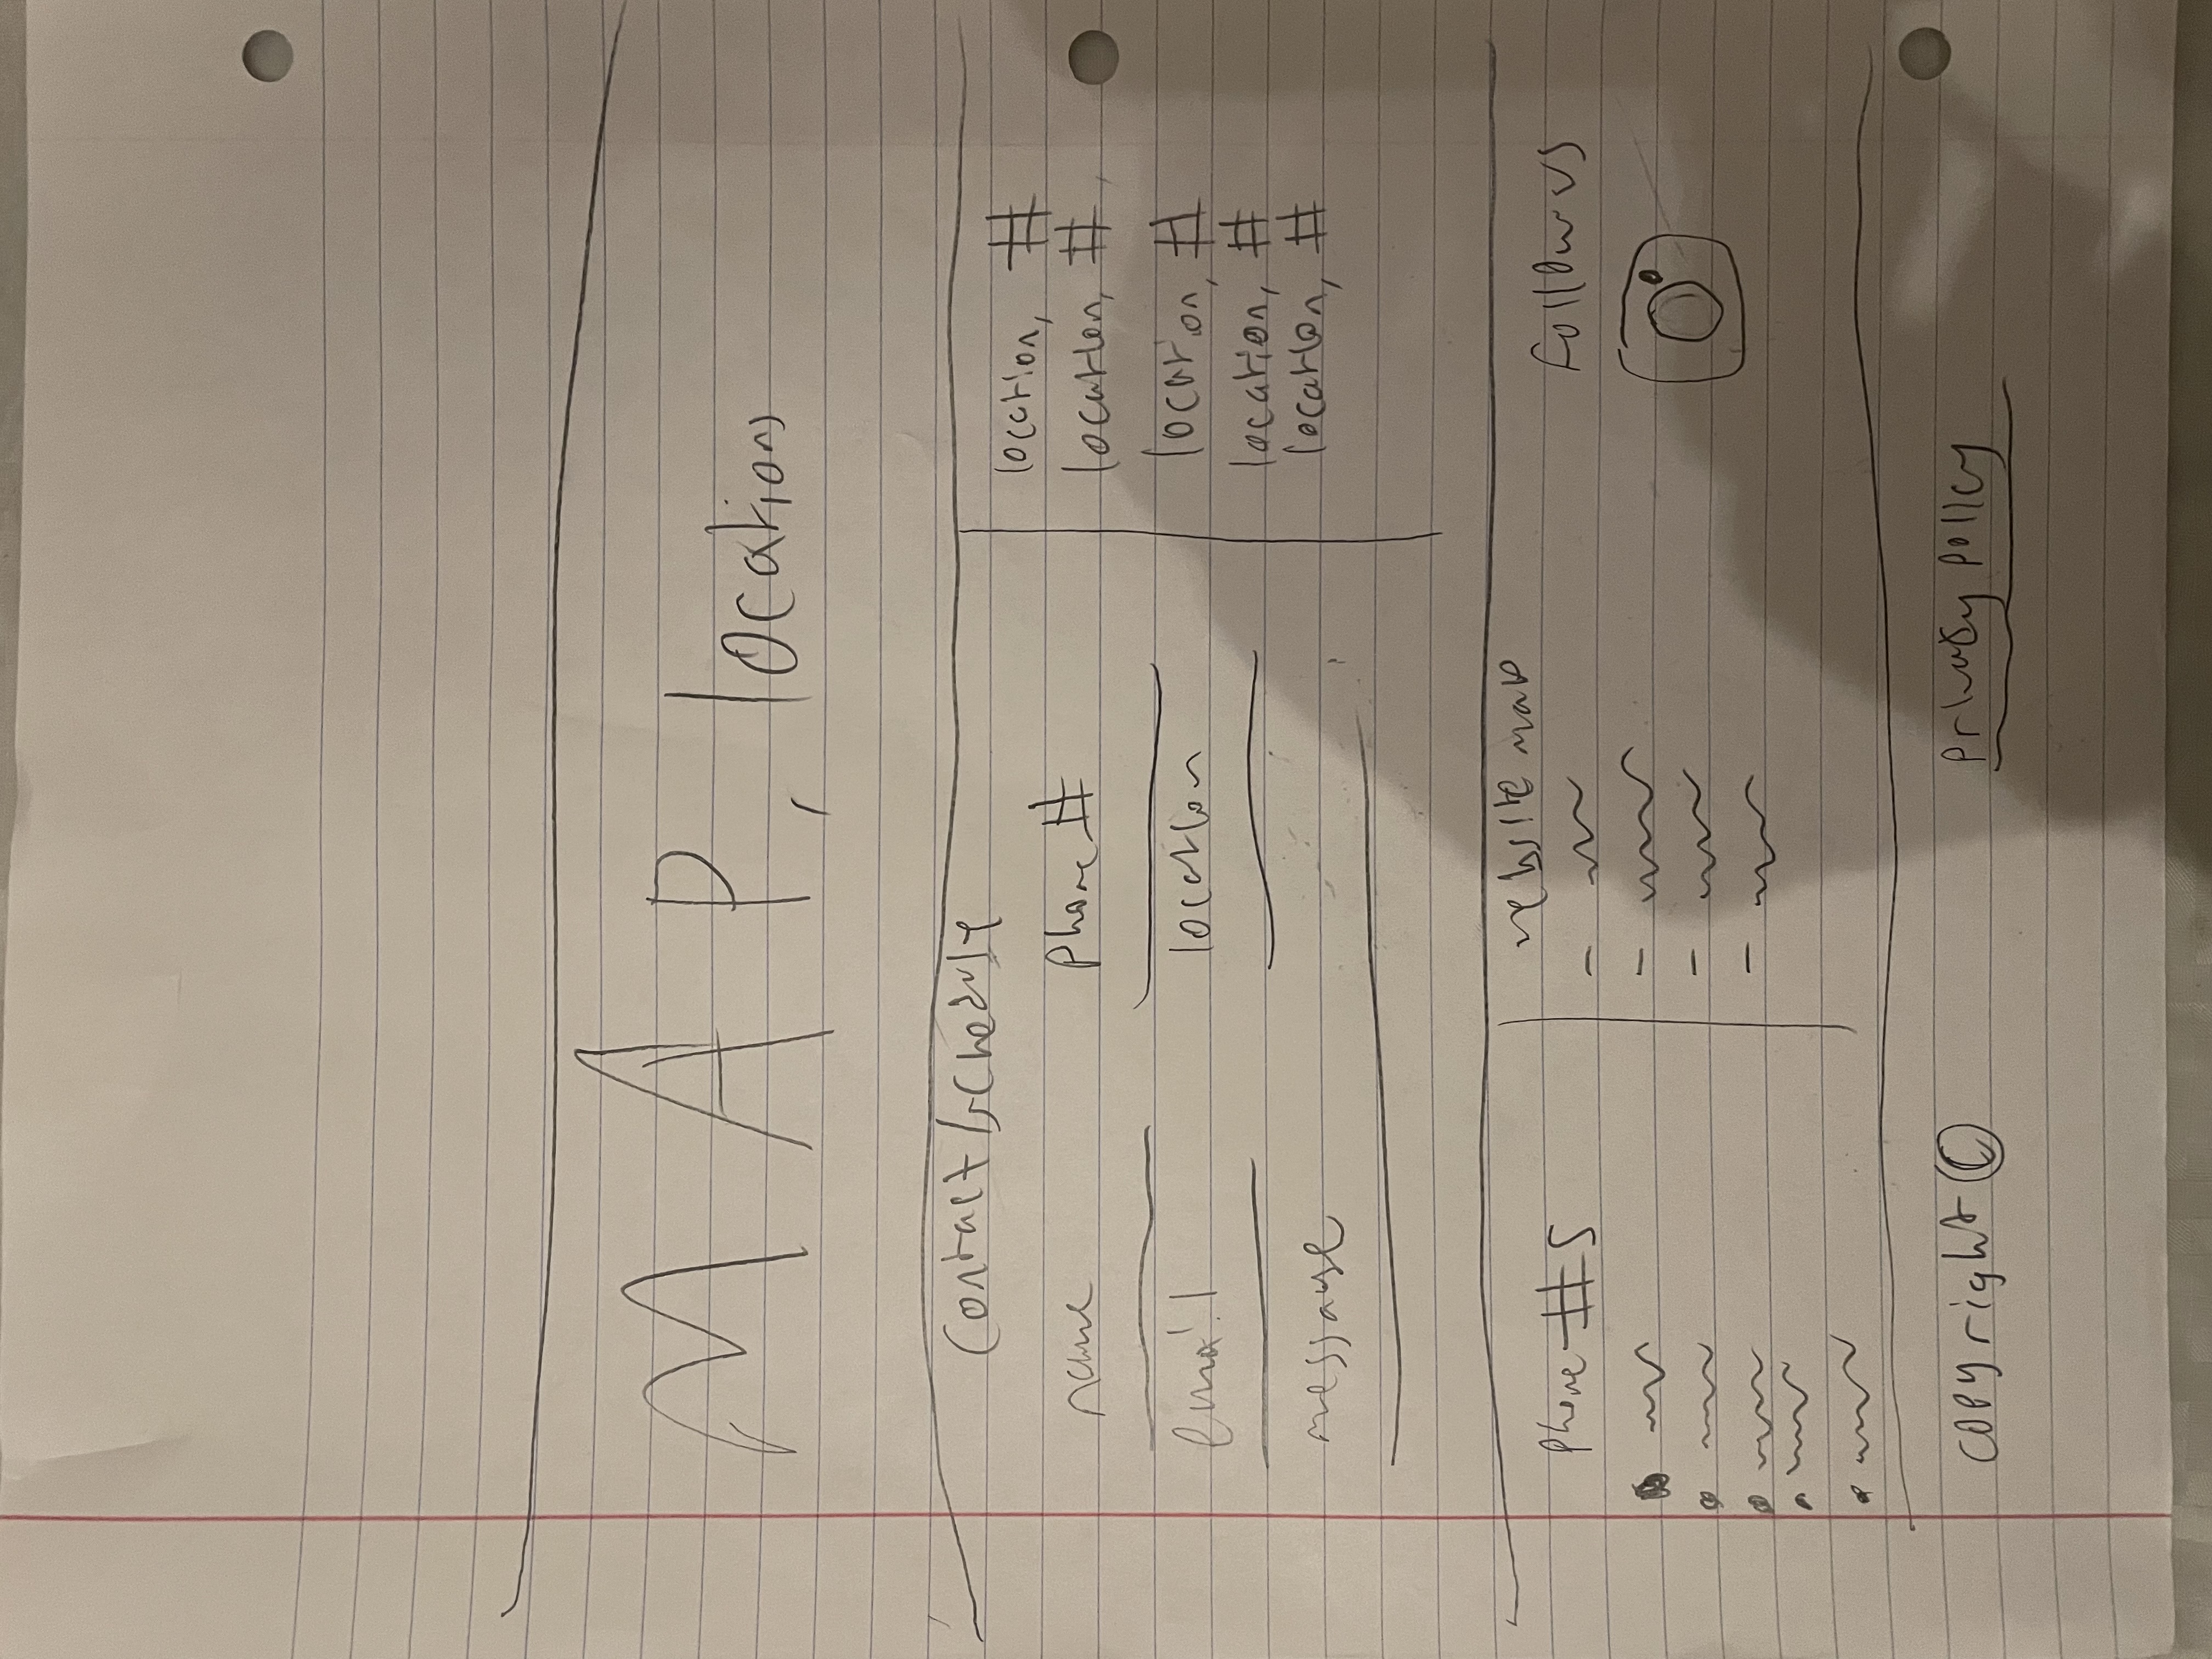 MAP, locations
Contact/schedule
name phone #
email location
message
location, #
location, #
location, #
location, #
location, #
phone #s
website map
Follow us
copyright ©
privacy policy